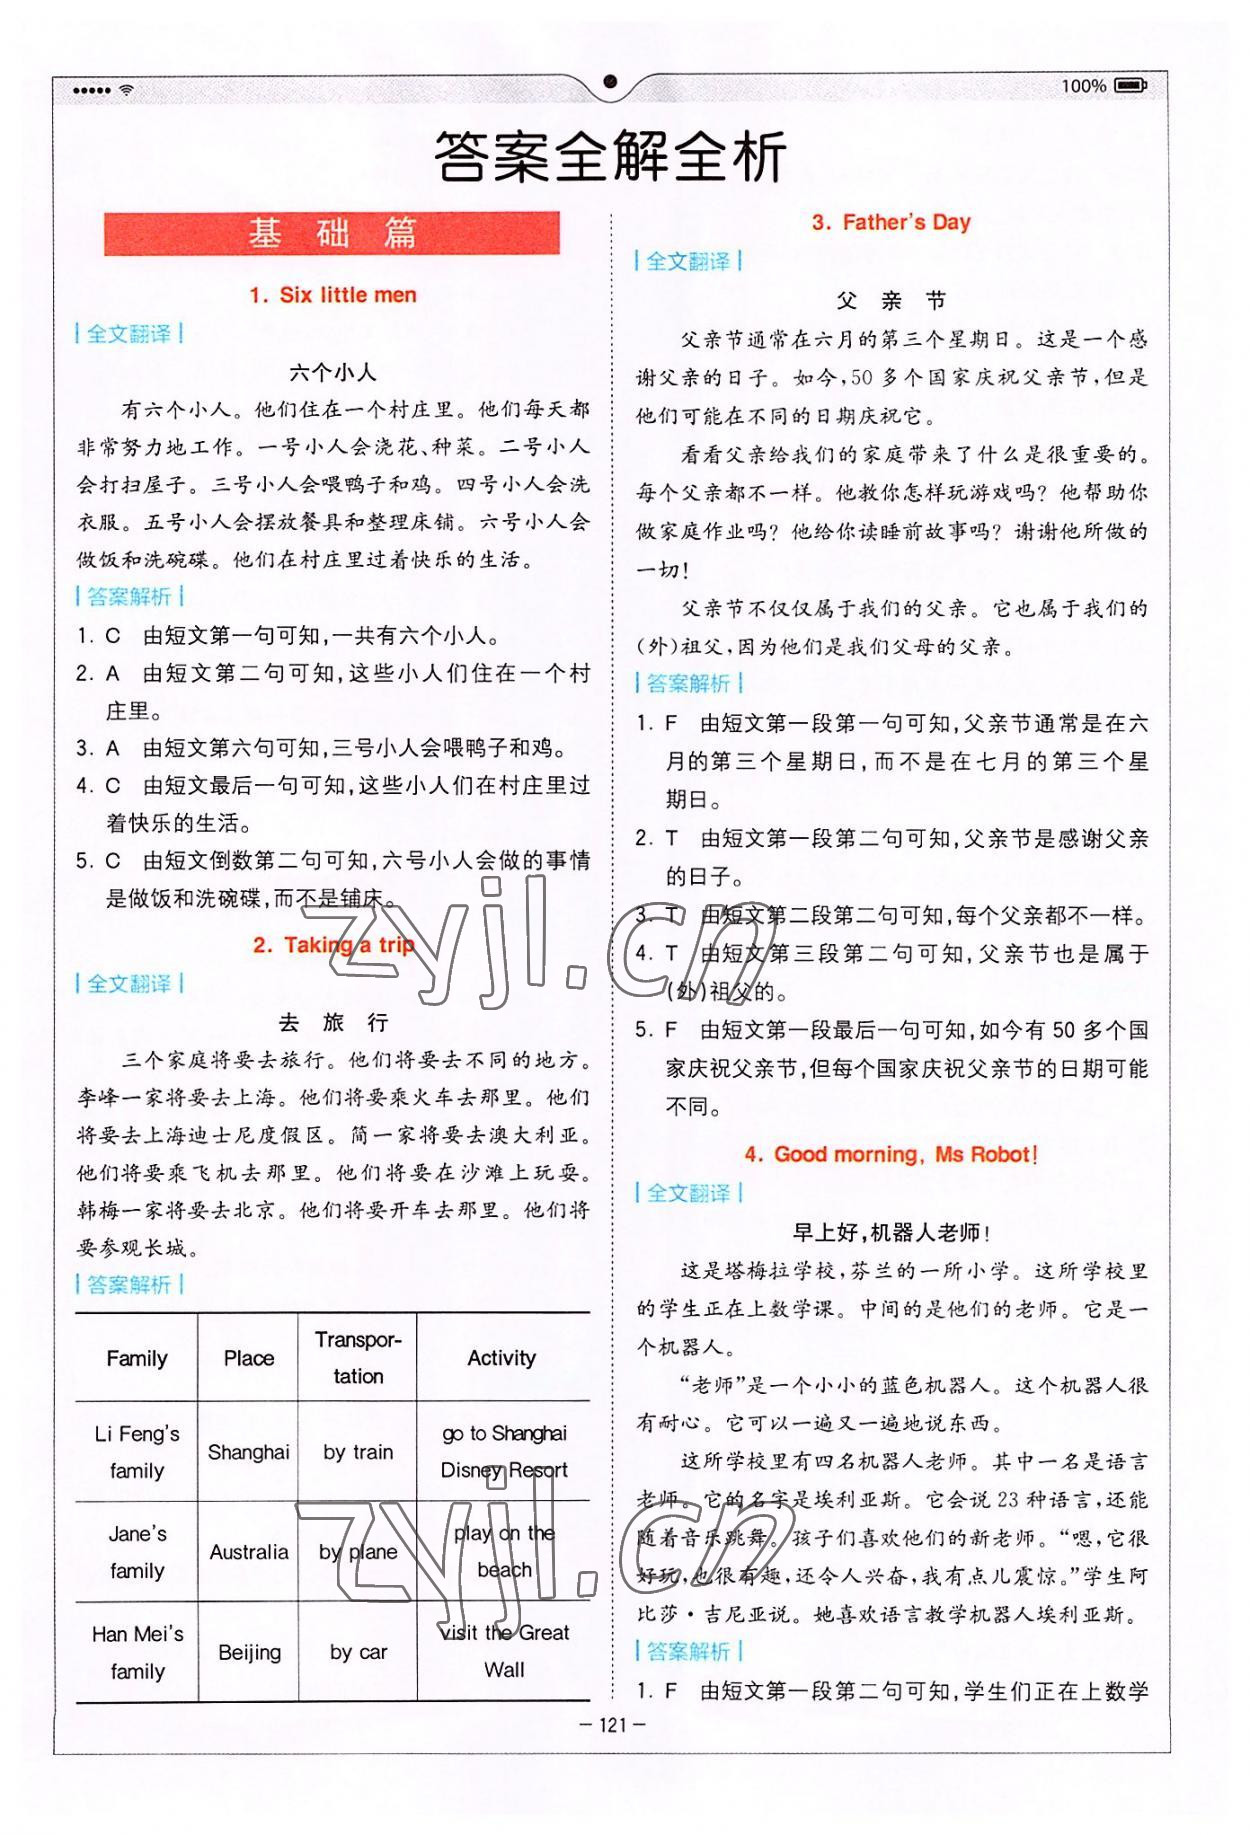 100%
答案全解全析
基 础 篇
1. Six little men
全文翻译
六个小人
有六个小人。他们住在一个村庄里。他们每天都
非常努力地工作。一号小人会浇花、种菜。二号小人
会打扫屋子。三号小人会喂鸭子和鸡。四号小人会洗
衣服。五号小人会摆放餐具和整理床铺。六号小人会
做饭和洗碗碟。他们在村庄里过着快乐的生活。
答案解析
1. C 由短文第一句可知,一共有六个小人。
2. A 由短文第二句可知,这些小人们住在一个村
庄里。
3. A 由短文第六句可知,三号小人会喂鸭子和鸡。
4. C 由短文最后一句可知,这些小人们在村庄里过
着快乐的生活。
5. C 由短文倒数第二句可知,六号小人会做的事情
是做饭和洗碗碟,而不是铺床。
2. Taking a trip
全文翻译
去 旅 行
三个家庭将要去旅行。他们将要去不同的地方。
李峰一家将要去上海。他们将要乘火车去那里。他们
将要去上海迪士尼度假区。简一家将要去澳大利亚。
他们将要乘飞机去那里。他们将要在沙滩上玩耍。
韩梅一家将要去北京。他们将要开车去那里。他们将
要参观长城。
答案解析
Family Place Transpor- Activity
tation
Li Feng's family Shanghai by train go to Shanghai Disney Resort
Jane's family Australia by plane play on the beach
Han Mei's family Beijing by car visit the Great Wall
3. Father's Day
全文翻译
父 亲 节
父亲节通常在六月的第三个星期日。这是一个感
谢父亲的日子。如今,50 多个国家庆祝父亲节,但是
他们可能在不同的日期庆祝它。
看看父亲给我们的家庭带来了什么是很重要的。
每个父亲都不一样。他教你怎样玩游戏吗? 他帮助你
做家庭作业吗? 他给你读睡前故事吗? 谢谢他所做的
一切!
父亲节不仅仅属于我们的父亲。它也属于我们的
(外)祖父,因为他们是我们父母的父亲。
答案解析
1. F 由短文第一段第一句可知,父亲节通常是在六
月的第三个星期日,而不是在七月的第三个星
期日。
2. T 由短文第一段第二句可知,父亲节是感谢父亲
的日子。
3. T 由短文第二段第二句可知,每个父亲都不一样。
4. T 由短文第三段第二句可知,父亲节也是属于
(外)祖父的。
5. F 由短文第一段最后一句可知,如今有 50 多个国
家庆祝父亲节,但每个国家庆祝父亲节的日期可能
不同。
4. Good morning, Ms Robot!
全文翻译
早上好,机器人老师!
这是塔梅拉学校,芬兰的一所小学。这所学校里
的学生正在上数学课。中间的是他们的老师。它是一
个机器人。
“老师”是一个小小的蓝色机器人。这个机器人很
有耐心。它可以一遍又一遍地说东西。
这所学校里有四名机器人老师。其中一名是语言
老师。它的名字是埃利亚斯。它会说 23 种语言,还能
随着音乐跳舞。孩子们喜欢他们的新老师。“嗯,它很
好玩,也很有趣,还令人兴奋,我有点儿震惊。”学生阿
比莎·吉尼亚说。她喜欢语言教学机器人埃利亚斯。
答案解析
1. F 由短文第一段第二句可知,学生们正在上数学
- 121 -
zyjl.cn
zyjl.cn